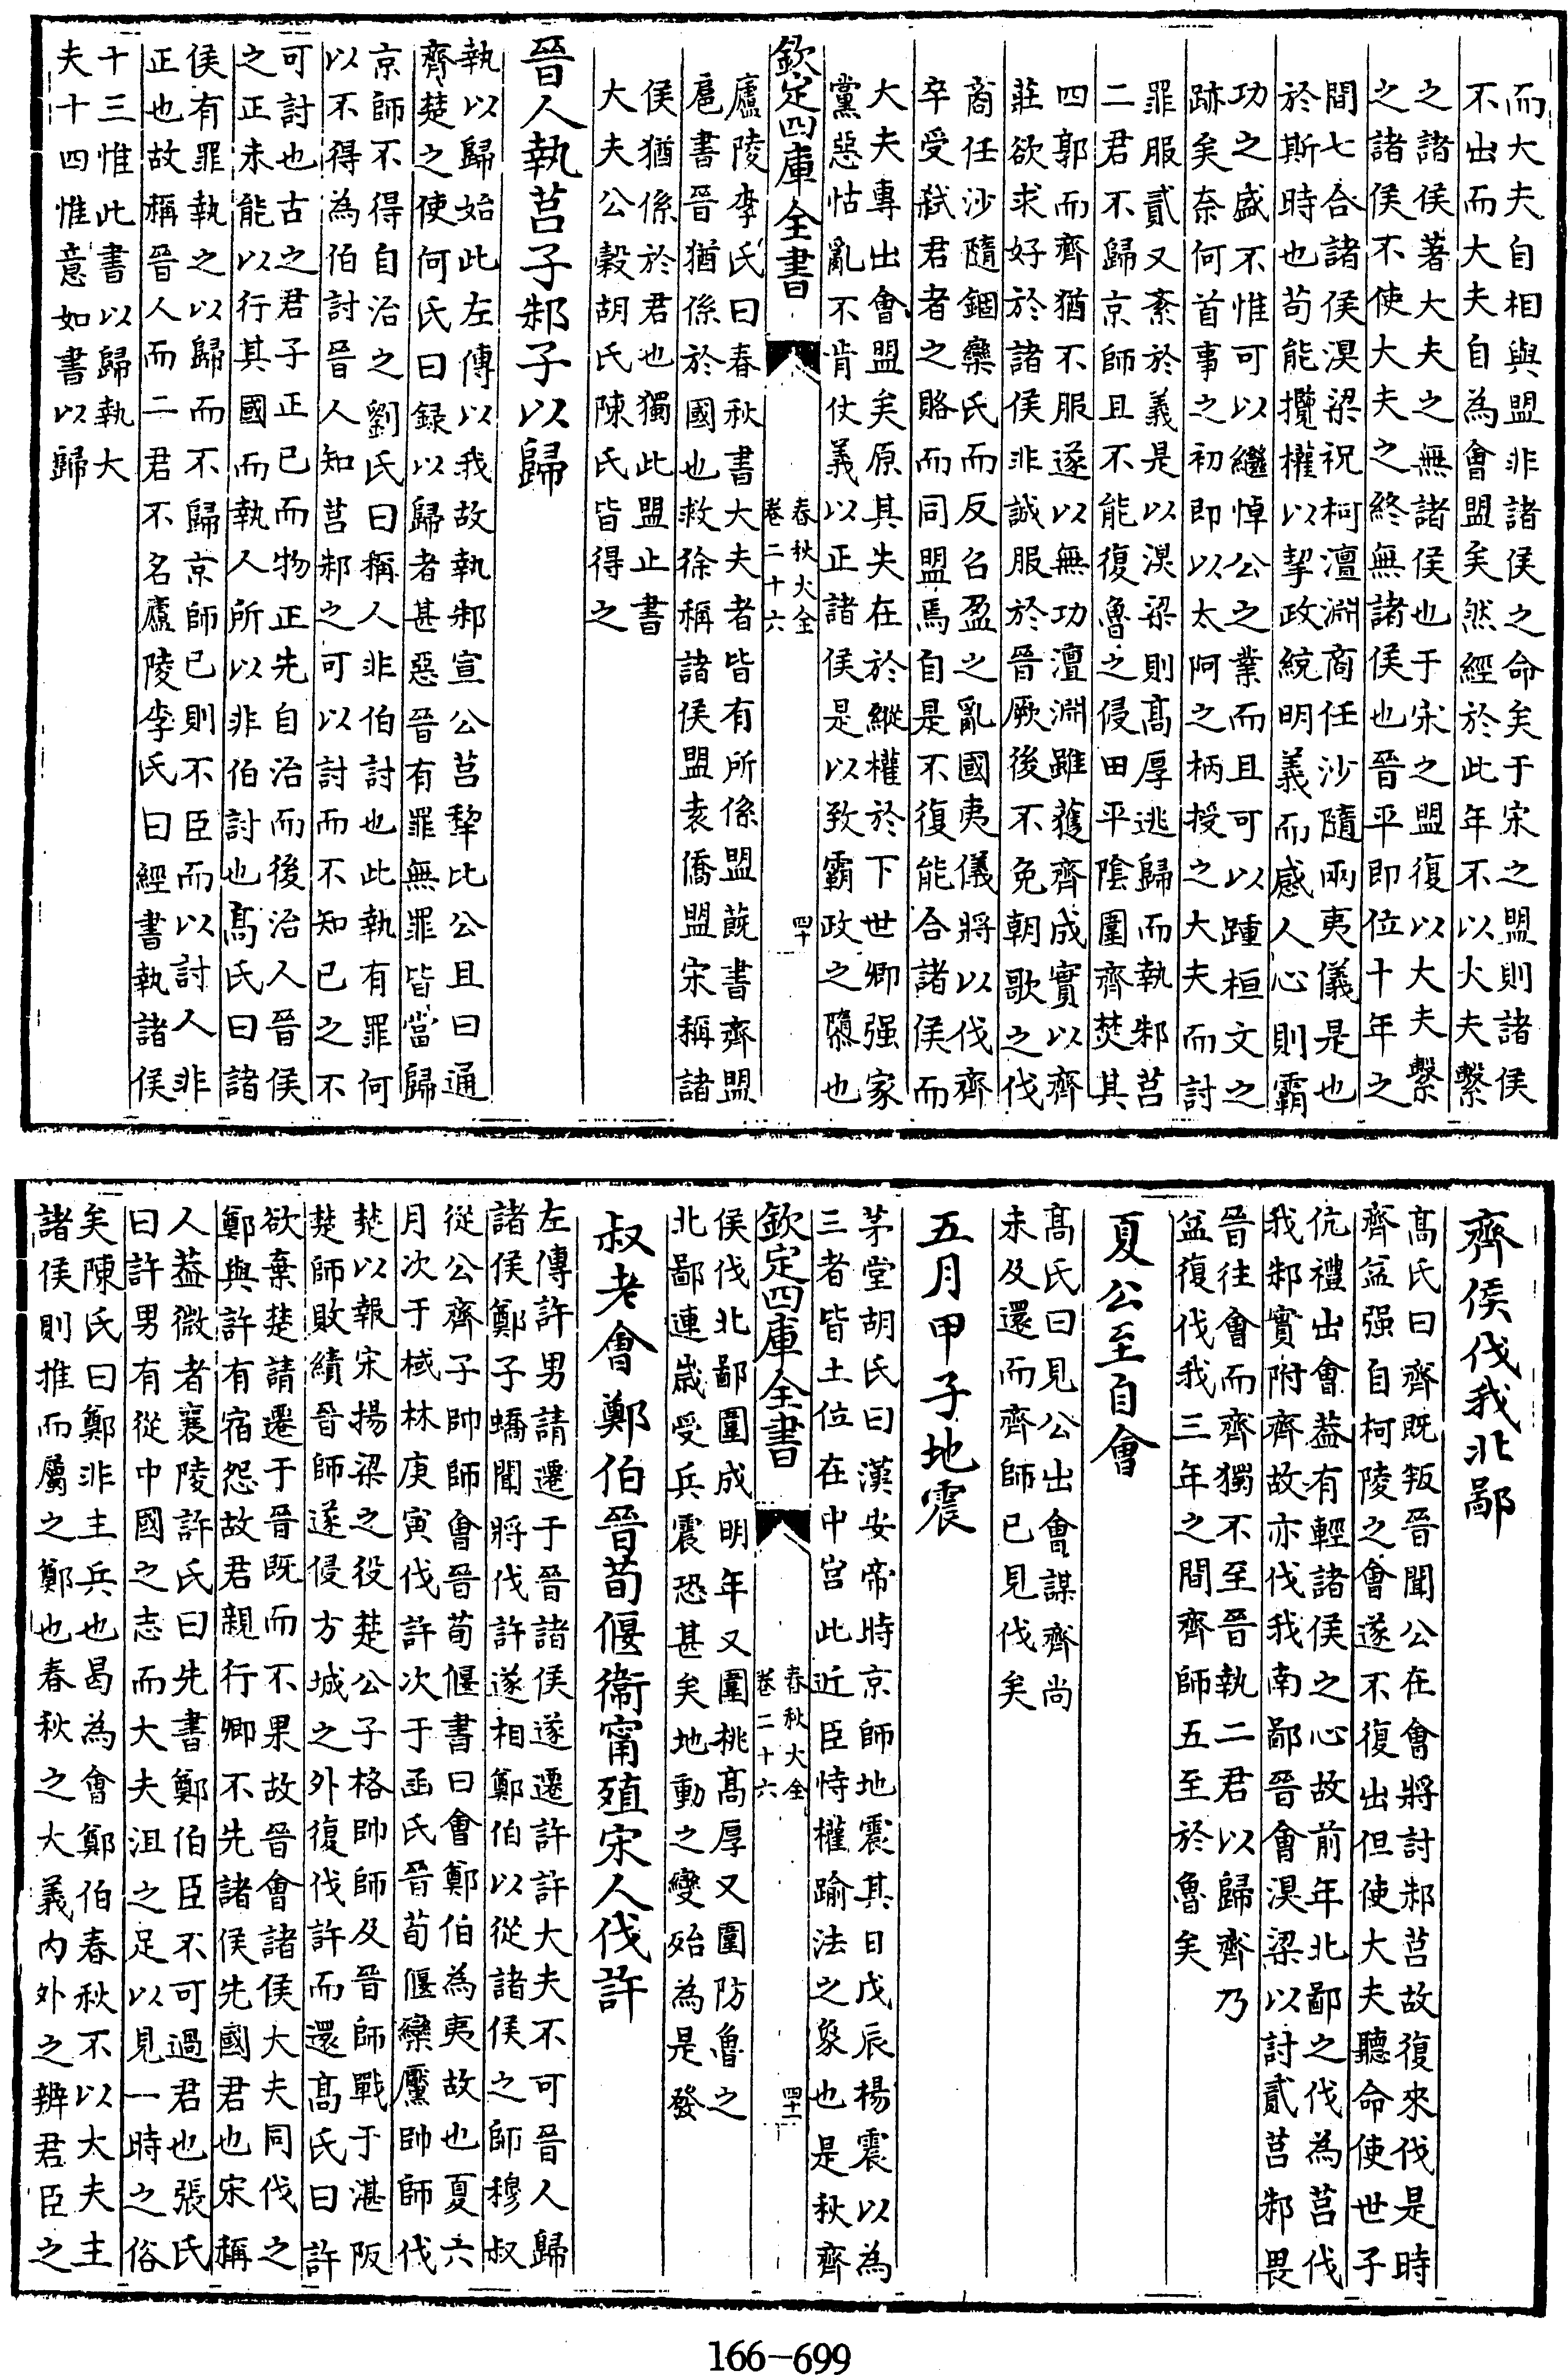 而大夫自相與盟非諸侯之命矣于宋之盟則諸侯
不出而大夫自為會盟矣然經於此年不以大夫繫
之諸侯著大夫之無諸侯也于宋之盟復以大夫繫
之諸侯不使大夫之終無諸侯也晉平即位十年之
間七合諸侯湨梁祝柯澶淵商任沙隨兩夷儀是也
於斯時也苟能攬權以挈政統明義而感人心則霸
功之盛不惟可以繼悼公之業而且可以踵桓文之
跡矣奈何首事之初即以太阿之柄授之大夫而討
罪服貳又紊於義是以湨梁則高厚逃歸而執邾莒
二君不歸京師且不能復魯之侵田平陰圍齊焚其
四郭而齊猶不服遂以無功澶淵雖獲齊成實以齊
莊欲求好於諸侯非誠服於晉厥後不免朝歌之伐
商任沙隨錮欒氏而反召盈之亂國夷儀將以伐齊
卒受弑君者之賂而同盟焉自是不復能合諸侯而
大夫專出會盟矣原其失在於縱權於下世卿强家
黨惡怙亂不肯仗義以正諸侯是以致霸政之隳也
欽定四庫全書
春秋大全
卷二十六
四十
廬陵李氏曰春秋書大夫者皆有所係盟蔇書齊盟
扈書晉猶係於國也救徐稱諸侯盟袁僑盟宋稱諸
侯猶係於君也獨此盟止書
大夫公穀胡氏陳氏皆得之
晉人執莒子邾子以歸
執以歸始此左傳以我故執邾宣公莒犂比公且曰通
齊楚之使何氏曰錄以歸者甚惡晉有罪無罪皆當歸
京師不得自治之劉氏曰稱人非伯討也此執有罪何
以不得為伯討晉人知莒邾之可以討而不知已之不
可討也古之君子正已而物正先自治而後治人晉侯
之正未能以行其國而執人所以非伯討也髙氏曰諸
侯有罪執之以歸而不歸京師已則不臣而以討人非
正也故稱晉人而二君不名廬陵李氏曰經書執諸侯
十三惟此書以歸執大
夫十四惟意如書以歸
齊侯伐我北鄙
髙氏曰齊既叛晉聞公在會將討邾莒故復來伐是時
齊益强自柯陵之會遂不復出但使大夫聽命使世子
伉禮出會葢有輕諸侯之心故前年北鄙之伐為莒伐
我邾實附齊故亦伐我南鄙晉會湨梁以討貳莒邾畏
晉往會而齊獨不至晉執二君以歸齊乃
益復伐我三年之間齊師五至於魯矣
夏公至自會
髙氏曰見公出會謀齊尚
未及還而齊師已見伐矣
五月甲子地震
茅堂胡氏曰漢安帝時京師地震其日戊辰楊震以為
三者皆土位在中宫此近臣恃權踰法之象也是秋齊
欽定四庫全書
春秋大全
卷二十六
四十一
侯伐北鄙圍成明年又圍桃髙厚又圍防魯之
北鄙連歲受兵震恐甚矣地動之變殆為是發
叔老會鄭伯晉荀偃衞甯殖宋人伐許
左傳許男請遷于晉諸侯遂遷許許大夫不可晉人歸
諸侯鄭子蟜聞將伐許遂相鄭伯以從諸侯之師穆叔
從公齊子帥師會晉荀偃書曰會鄭伯為夷故也夏六
月次于棫林庚寅伐許次于函氏晉荀偃欒黶帥師伐
楚以報宋揚梁之役楚公子格帥師及晉師戰于湛阪
楚師敗績晉師遂侵方城之外復伐許而還髙氏曰許
欲棄楚請遷于晉既而不果故晉會諸侯大夫同伐之
鄭與許有宿怨故君親行卿不先諸侯先國君也宋稱
人葢微者襄陵許氏曰先書鄭伯臣不可過君也張氏
曰許男有從中國之志而大夫沮之足以見一時之俗
矣陳氏曰鄭非主兵也曷為會鄭伯春秋不以大夫主
諸侯則推而屬之鄭也春秋之大義内外之辨君臣之
166-699